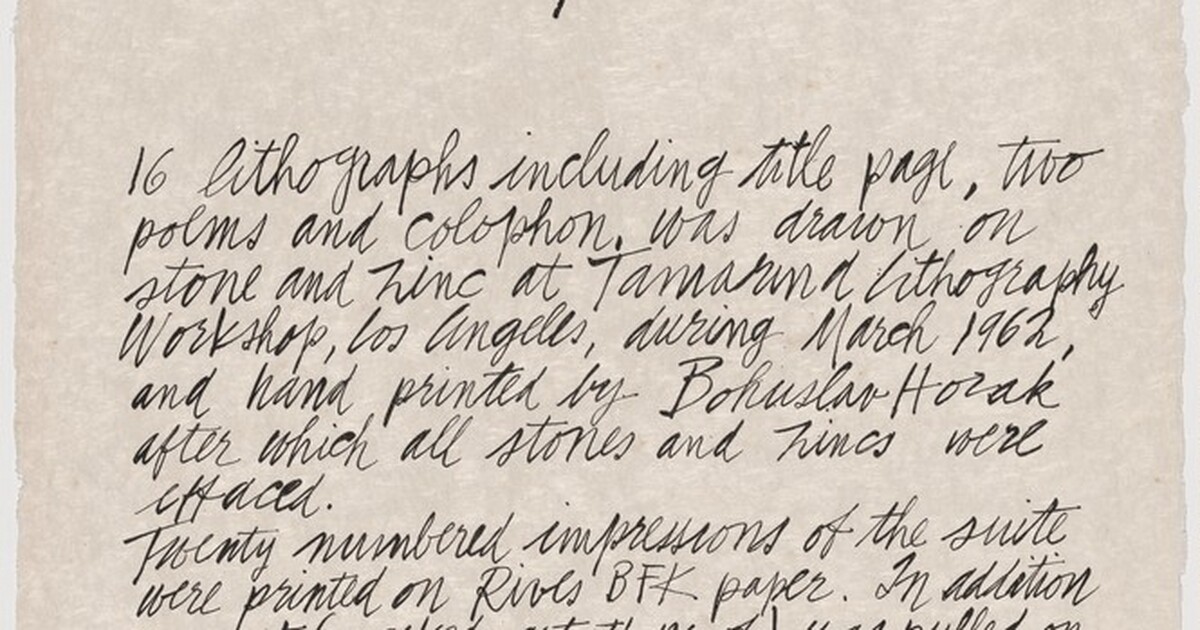 16 lithographs including title page, two
poems and colophon, was drawn on
stone and zinc at Tamarind Lithography
Workshop, Los Angeles, during March 1962,
and hand printed by Bohuslav Horak
after which all stones and zincs were
effaced.
Twenty numbered impressions of the suite
were printed on Rives BFK paper. In addition
was pulled on